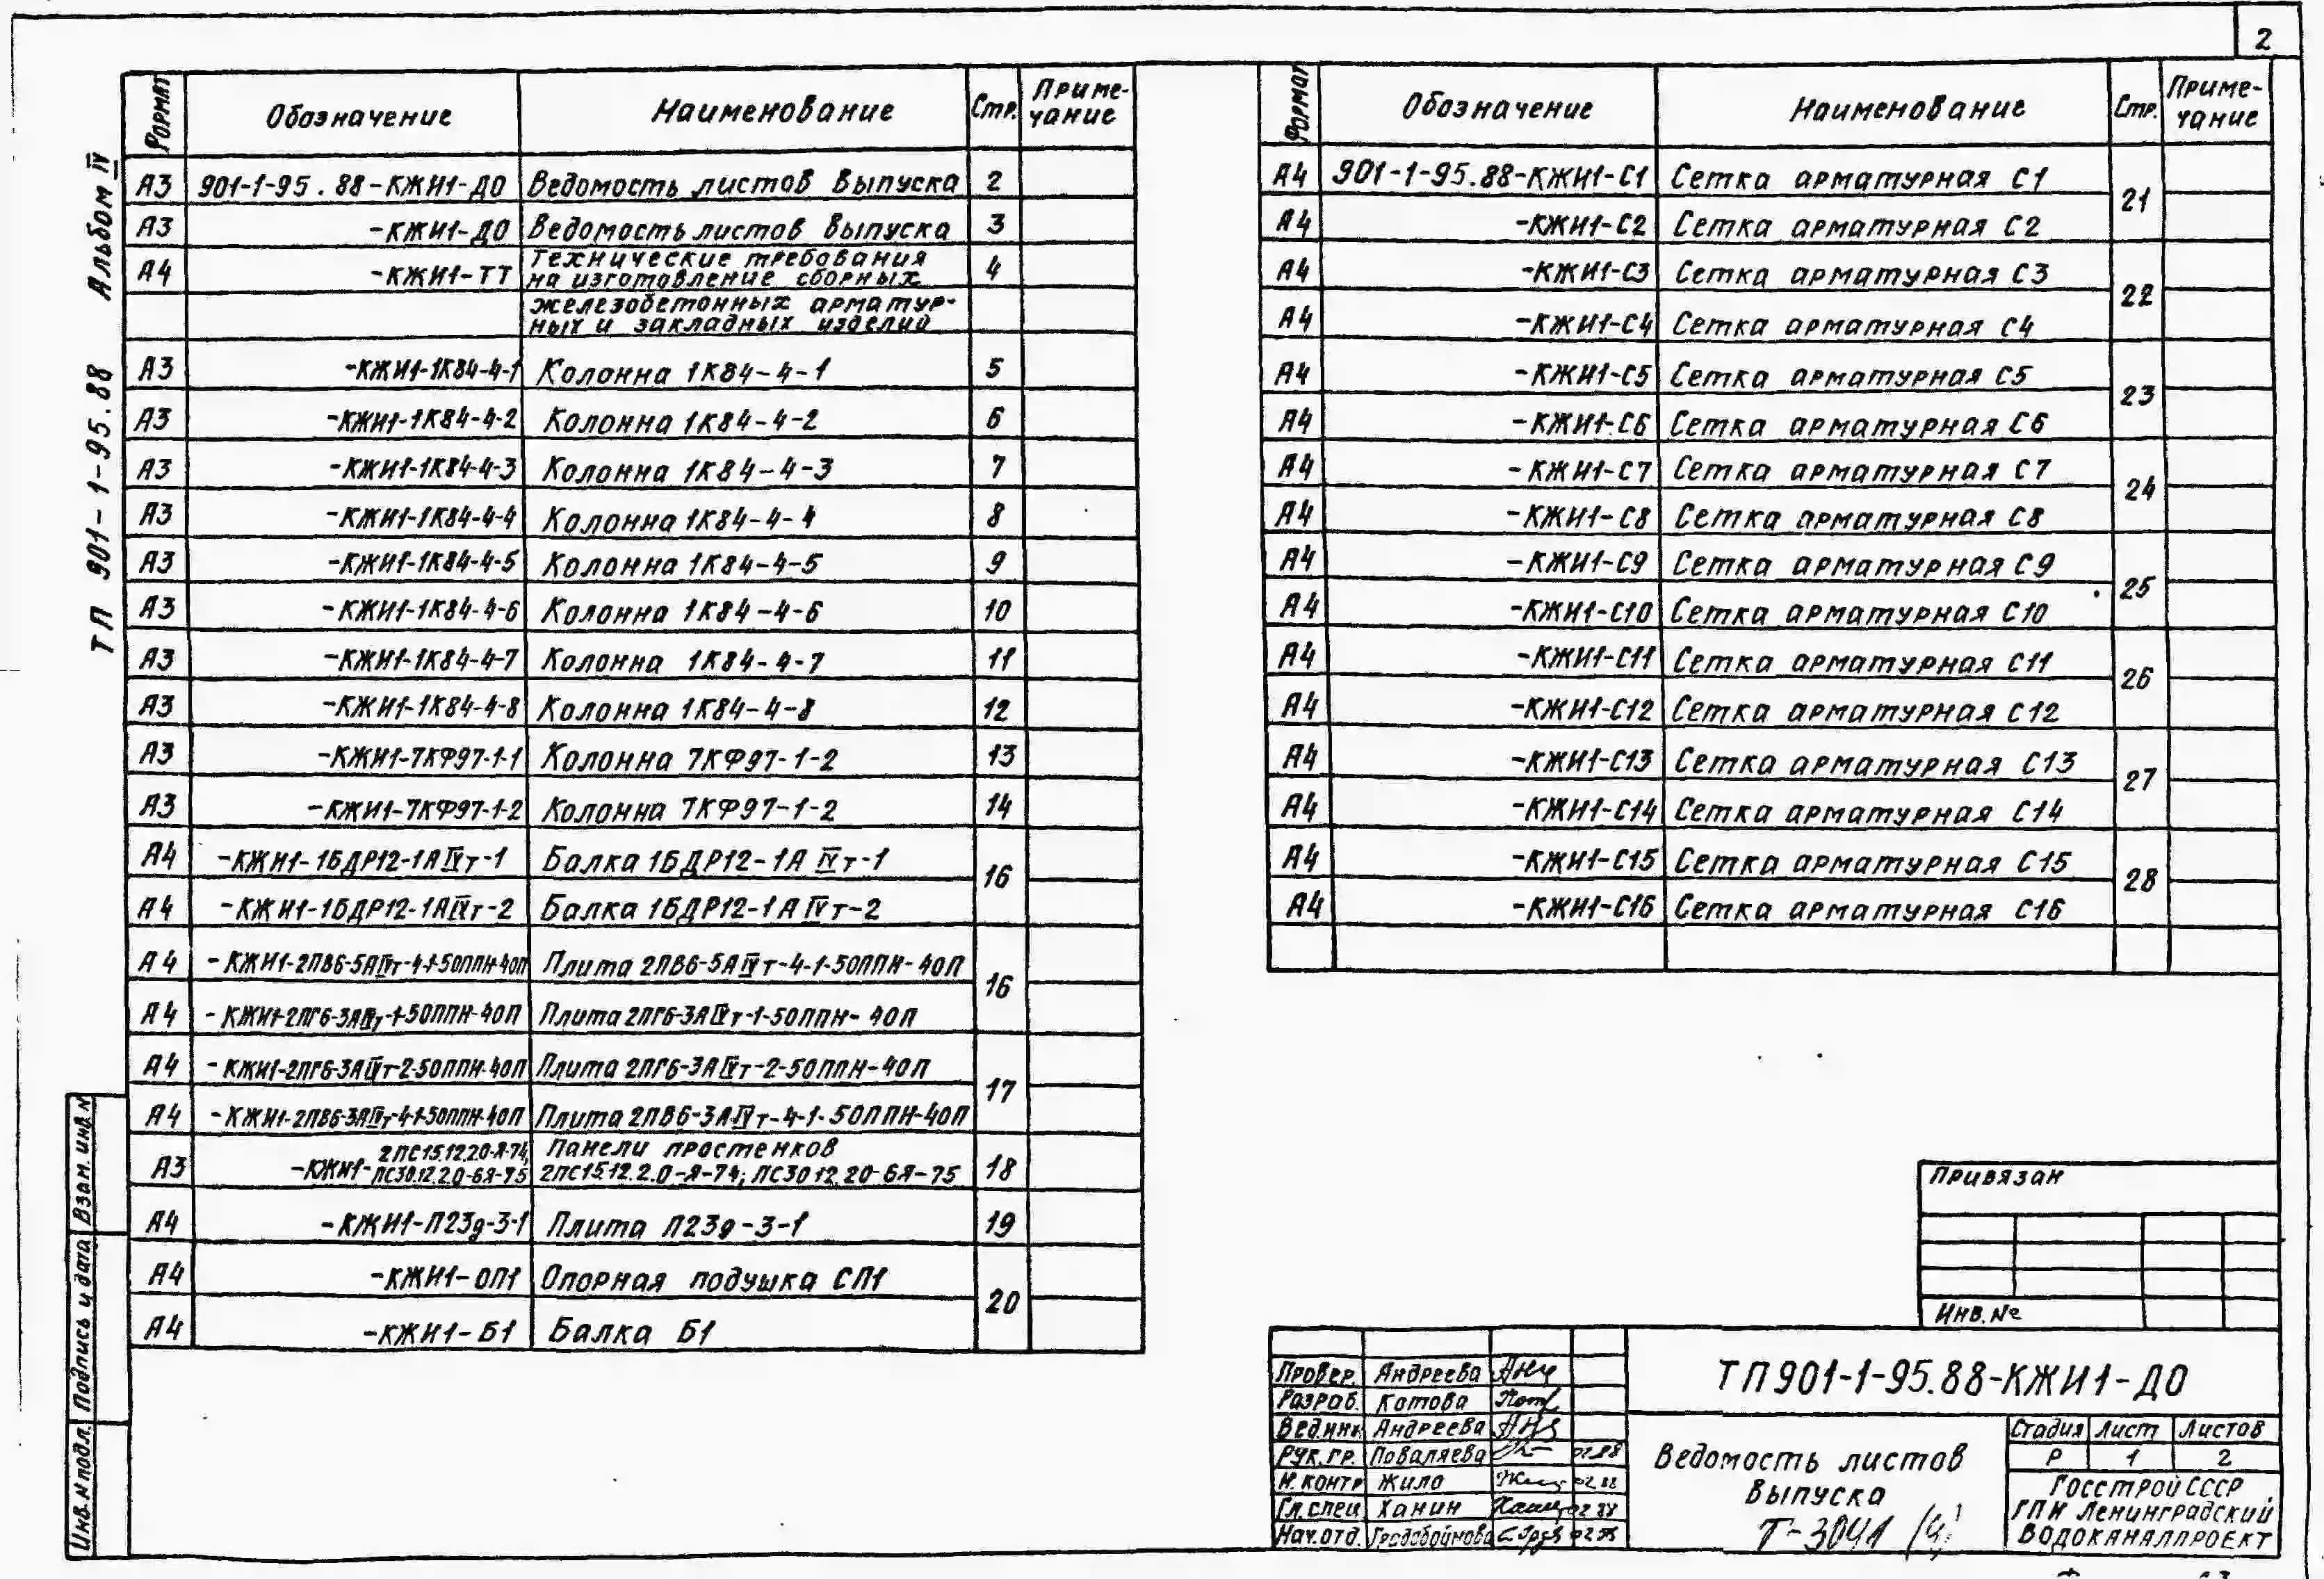 2
ТП 901-1-95.88 Альбом IV
Формат Обозначение Наименование Стр. Приме-
чание
А3 901-1-95.88-КЖИ1-Д0 Ведомость листов выпуска 2
А3 -КЖИ1-Д0 Ведомость листов выпуска 3
А4 -КЖИ1-ТТ Технические требования 4
на изготовление сборных
железобетонных арматур-
ных и закладных изделий
А3 -КЖИ1-1К84-4-1 Колонна 1К84-4-1 5
А3 -КЖИ1-1К84-4-2 Колонна 1К84-4-2 6
А3 -КЖИ1-1К84-4-3 Колонна 1К84-4-3 7
А3 -КЖИ1-1К84-4-4 Колонна 1К84-4-4 8
А3 -КЖИ1-1К84-4-5 Колонна 1К84-4-5 9
А3 -КЖИ1-1К84-4-6 Колонна 1К84-4-6 10
А3 -КЖИ1-1К84-4-7 Колонна 1К84-4-7 11
А3 -КЖИ1-1К84-4-8 Колонна 1К84-4-8 12
А3 -КЖИ1-7КФ97-1-1 Колонна 7КФ97-1-2 13
А3 -КЖИ1-7КФ97-1-2 Колонна 7КФ97-1-2 14
А4 -КЖИ1-1БДР12-1АIVт-1 Балка 1БДР12-1АIVт-1 16
А4 -КЖИ1-1БДР12-1АIVт-2 Балка 1БДР12-1АIVт-2
А4 -КЖИ1-2ПВ6-5АIVт-4-1-50ППН-40П Плита 2ПВ6-5АIVт-4-1-50ППН-40П 16
А4 -КЖИ1-2ПГ6-3АIVт-1-50ППН-40П Плита 2ПГ6-3АIVт-1-50ППН-40П
А4 -КЖИ1-2ПГ6-3АIVт-2-50ППН-40П Плита 2ПГ6-3АIVт-2-50ППН-40П 17
А4 -КЖИ1-2ПВ6-3АIVт-4-1-50ППН-40П Плита 2ПВ6-3АIVт-4-1-50ППН-40П
А3 -КЖИ1- 2ПС15.12.20-Я-74, Панели простенков 18
ПС30.12.2.0-6Я-75 2ПС15.12.2.0-Я-74; ПС30 12.20-6Я-75
А4 -КЖИ1-П23д-3-1 Плита П23д-3-1 19
А4 -КЖИ1-ОП1 Опорная подушка СП1 20
А4 -КЖИ1-Б1 Балка Б1
Формат Обозначение Наименование Стр. Приме-
чание
А4 901-1-95.88-КЖИ1-С1 Сетка арматурная С1 21
А4 -КЖИ1-С2 Сетка арматурная С2
А4 -КЖИ1-С3 Сетка арматурная С3 22
А4 -КЖИ1-С4 Сетка арматурная С4
А4 -КЖИ1-С5 Сетка арматурная С5 23
А4 -КЖИ1-С6 Сетка арматурная С6
А4 -КЖИ1-С7 Сетка арматурная С7 24
А4 -КЖИ1-С8 Сетка арматурная С8
А4 -КЖИ1-С9 Сетка арматурная С9 25
А4 -КЖИ1-С10 Сетка арматурная С10
А4 -КЖИ1-С11 Сетка арматурная С11 26
А4 -КЖИ1-С12 Сетка арматурная С12
А4 -КЖИ1-С13 Сетка арматурная С13 27
А4 -КЖИ1-С14 Сетка арматурная С14
А4 -КЖИ1-С15 Сетка арматурная С15 28
А4 -КЖИ1-С16 Сетка арматурная С16
Привязан
Инв.№
Инв.N подл. Подпись и дата Взам. инв.N
Провер. Андреева
Разраб. Котова
Вед.инж. Андреева
Рук.гр. Поваляева 02.88
Н.контр Жило 02 88
Гл.спец Ханин 02 88
Нач.отд. 02 88
ТП901-1-95.88-КЖИ1-Д0
Ведомость листов
выпуска
Т-3041
Стадия Лист Листов
Р 1 2
Госстрой СССР
ГПИ Ленинградский
Водоканалпроект